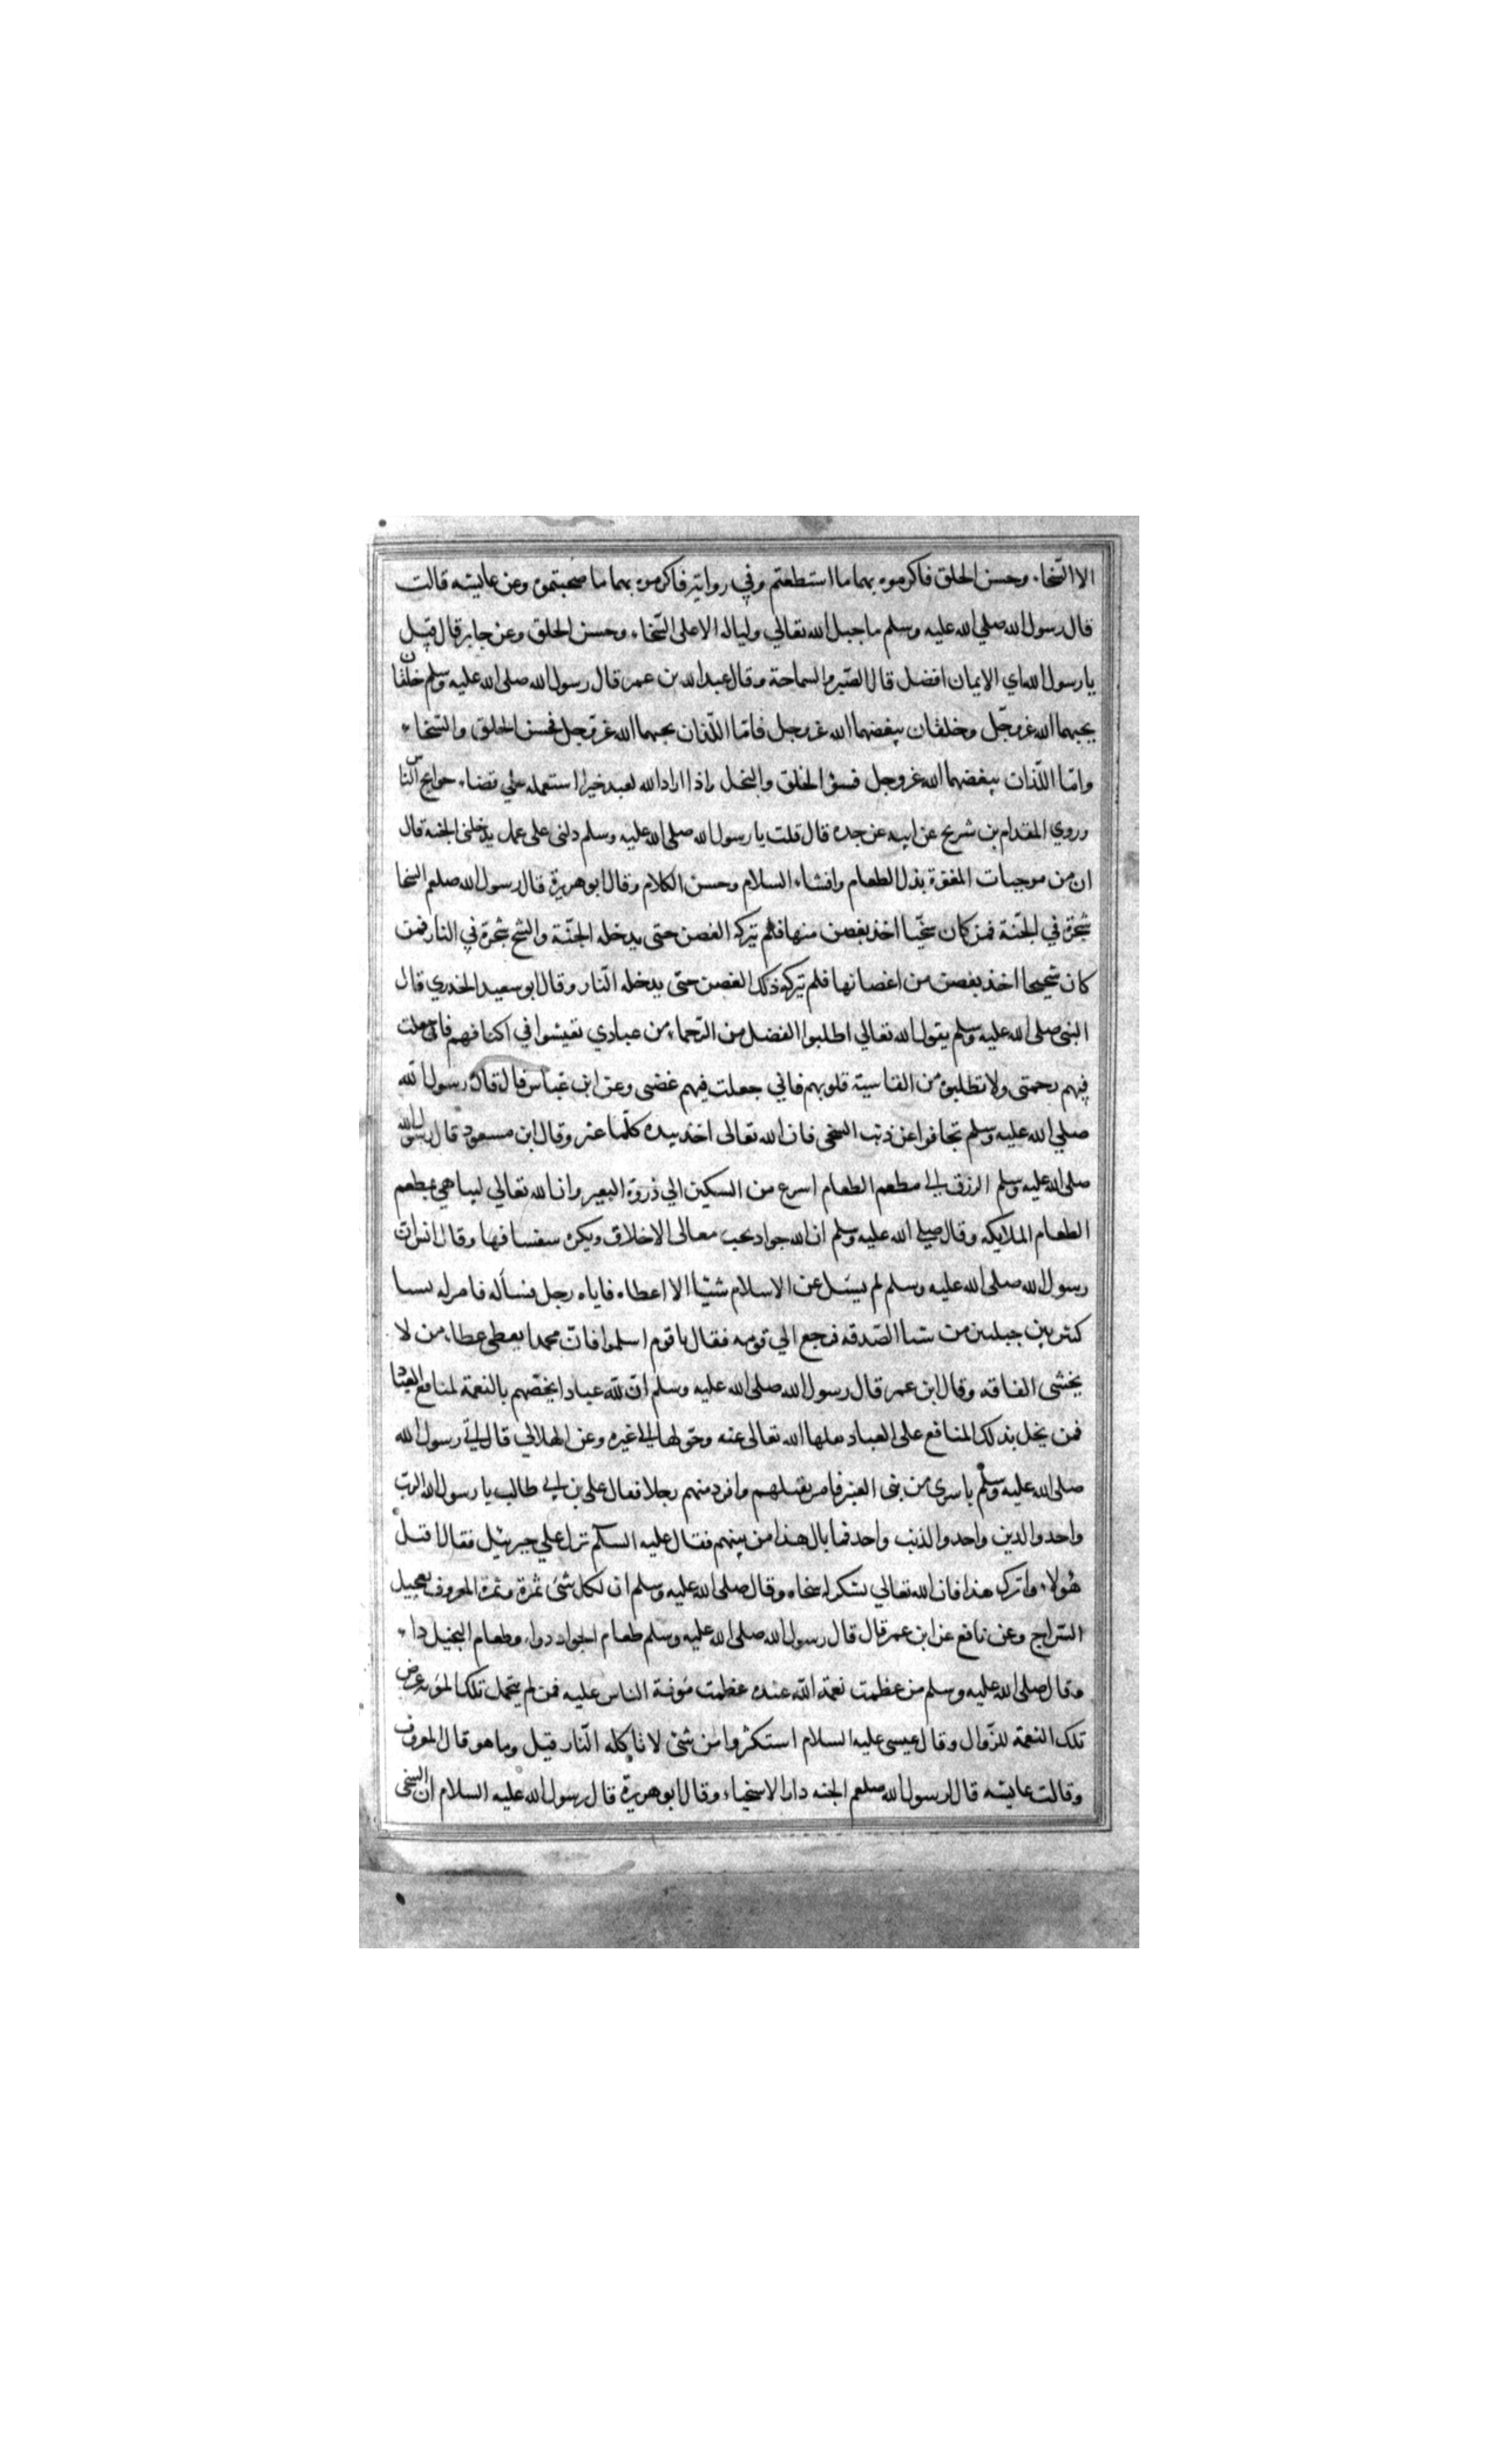 الا السّخاء وحسن الخلق فاكرموه بهما ما استطعتم وفي رواية فاكرموه بهما ما صحبتموه وعن عايشه قالت
قال رسول الله صلي الله عليه وسلم ما جبل الله تعالي وليا له الا على السّخاء وحسن الخلق وعن جابر قال قيل
يا رسول الله اي الايمان افضل قال الصّبر والسماحة وقال عبدالله بن عمر قال رسول الله صلى الله عليه وسلم خلقان
يحبهما الله عزوجّل وخلقان يبغضهما الله عزوجل فامّا اللّذان يحبهما الله عزّوجل فحسن الخلق والسّخاء
وامّا اللّذان يبغضهما الله عزوجل فسؤ الخلق والبخل واذا اراد الله لعبد خيرا استعمله علي قضاء حوايج النّاس
وروي المقدام بن شريح عن ابيه عن جده قال قلت يا رسول الله صلى الله عليه وسلم دلنى على عمل يدخلنى الجنة قال
ان من موجبات المغفرة بذل الطعام وافشاء السلام وحسن الكلام وقال ابوهريرة قال رسول الله صلعم السخا
شجرة في الجنّة فمن كان سخيّا اخذ بغصن منها فلم يتركه الغصن حتى يدخله الجنّة والشح شجرة في النار فمن
كان شحيحا اخذ بغصن من اغصانها فلم يتركه ذلك الغصن حتى يدخله النّار وقال ابو سعيد الخدري قال
النبى صلى الله عليه وسلم يقول الله تعالي اطلبوا الفضل من الرّحماء من عبادي تعيشوا في اكنافهم فاني جعلت
فيهم رحمتى ولا تطلبوه من القاسية قلوبهم فاني جعلت فيهم غضبى وعن ابن عبّاس قال قال رسول الله
صلي الله عليه وسلم تجافوا عن ذنب السخى فان الله تعالى اخذ بيده كلّما عثر وقال ابن مسعود قال رسول الله
صلى الله عليه وسلم الرزق الى مطعم الطعام اسرع من السكين الي ذروة البعير وان الله تعالي ليباهي بمطعم
الطعام الملايكه وقال صلي الله عليه وسلم ان الله جواد يحب معالى الاخلاق ويكره سفسافها وقال انس ان
رسول الله صلى الله عليه وسلم لم يسئل عن الاسلام شيئا الا اعطاه فاياه رجل فسأله فامر له بسا
كثر بين جبلين من شا الصّدقه فرجع الي قومه فقال يا قوم اسلموا فان محمدا يعطى عطاء من لا
يخشى الفاقه وقال ابن عمر قال رسول الله صلى الله عليه وسلم انّ لله عبادا يخصّهم بالنعمة لمنافع العباد
فمن بخل بذلك المنافع على العباد نقلها الله تعالى عنه وحّولها الى غيره وعن الهلالي قال اتي رسول الله
صلى الله عليه وسلم باسرى من بنى العنبر فامر بقتلهم وافرد منهم رجلا فقال على بن ابي طالب يا رسول الله الربّ
واحد والدين واحد والذنب واحد فما بال هذا من بينهم فقال عليه السلام نزل علي جبرئيل فقال اقتل
هولاء واترك هذا فان الله تعالي شكر له سخاه وقال صلى الله عليه وسلم ان لكل شئ ثمرة وثمرة المعروف تعجيل
السّراج وعن نافع عن ابن عمر قال قال رسول الله صلى الله عليه وسلم طعام الجواد دواء وطعام البخيل داء
وقال صلى الله عليه وسلم من عظمت نعمة اللّه عنده عظمت مؤنة الناس عليه فمن لم يتحمل تلك المؤنه عرض
تلك النعمة للزّوال وقال عيسى عليه السلام استكثروا من شئ لا تاكله النّار قيل وما هو قال المعروف
وقالت عايشه قال رسول الله صلعم الجنه دار الاسخياء وقال ابو هريرة قال رسول الله عليه السلام ان السخى